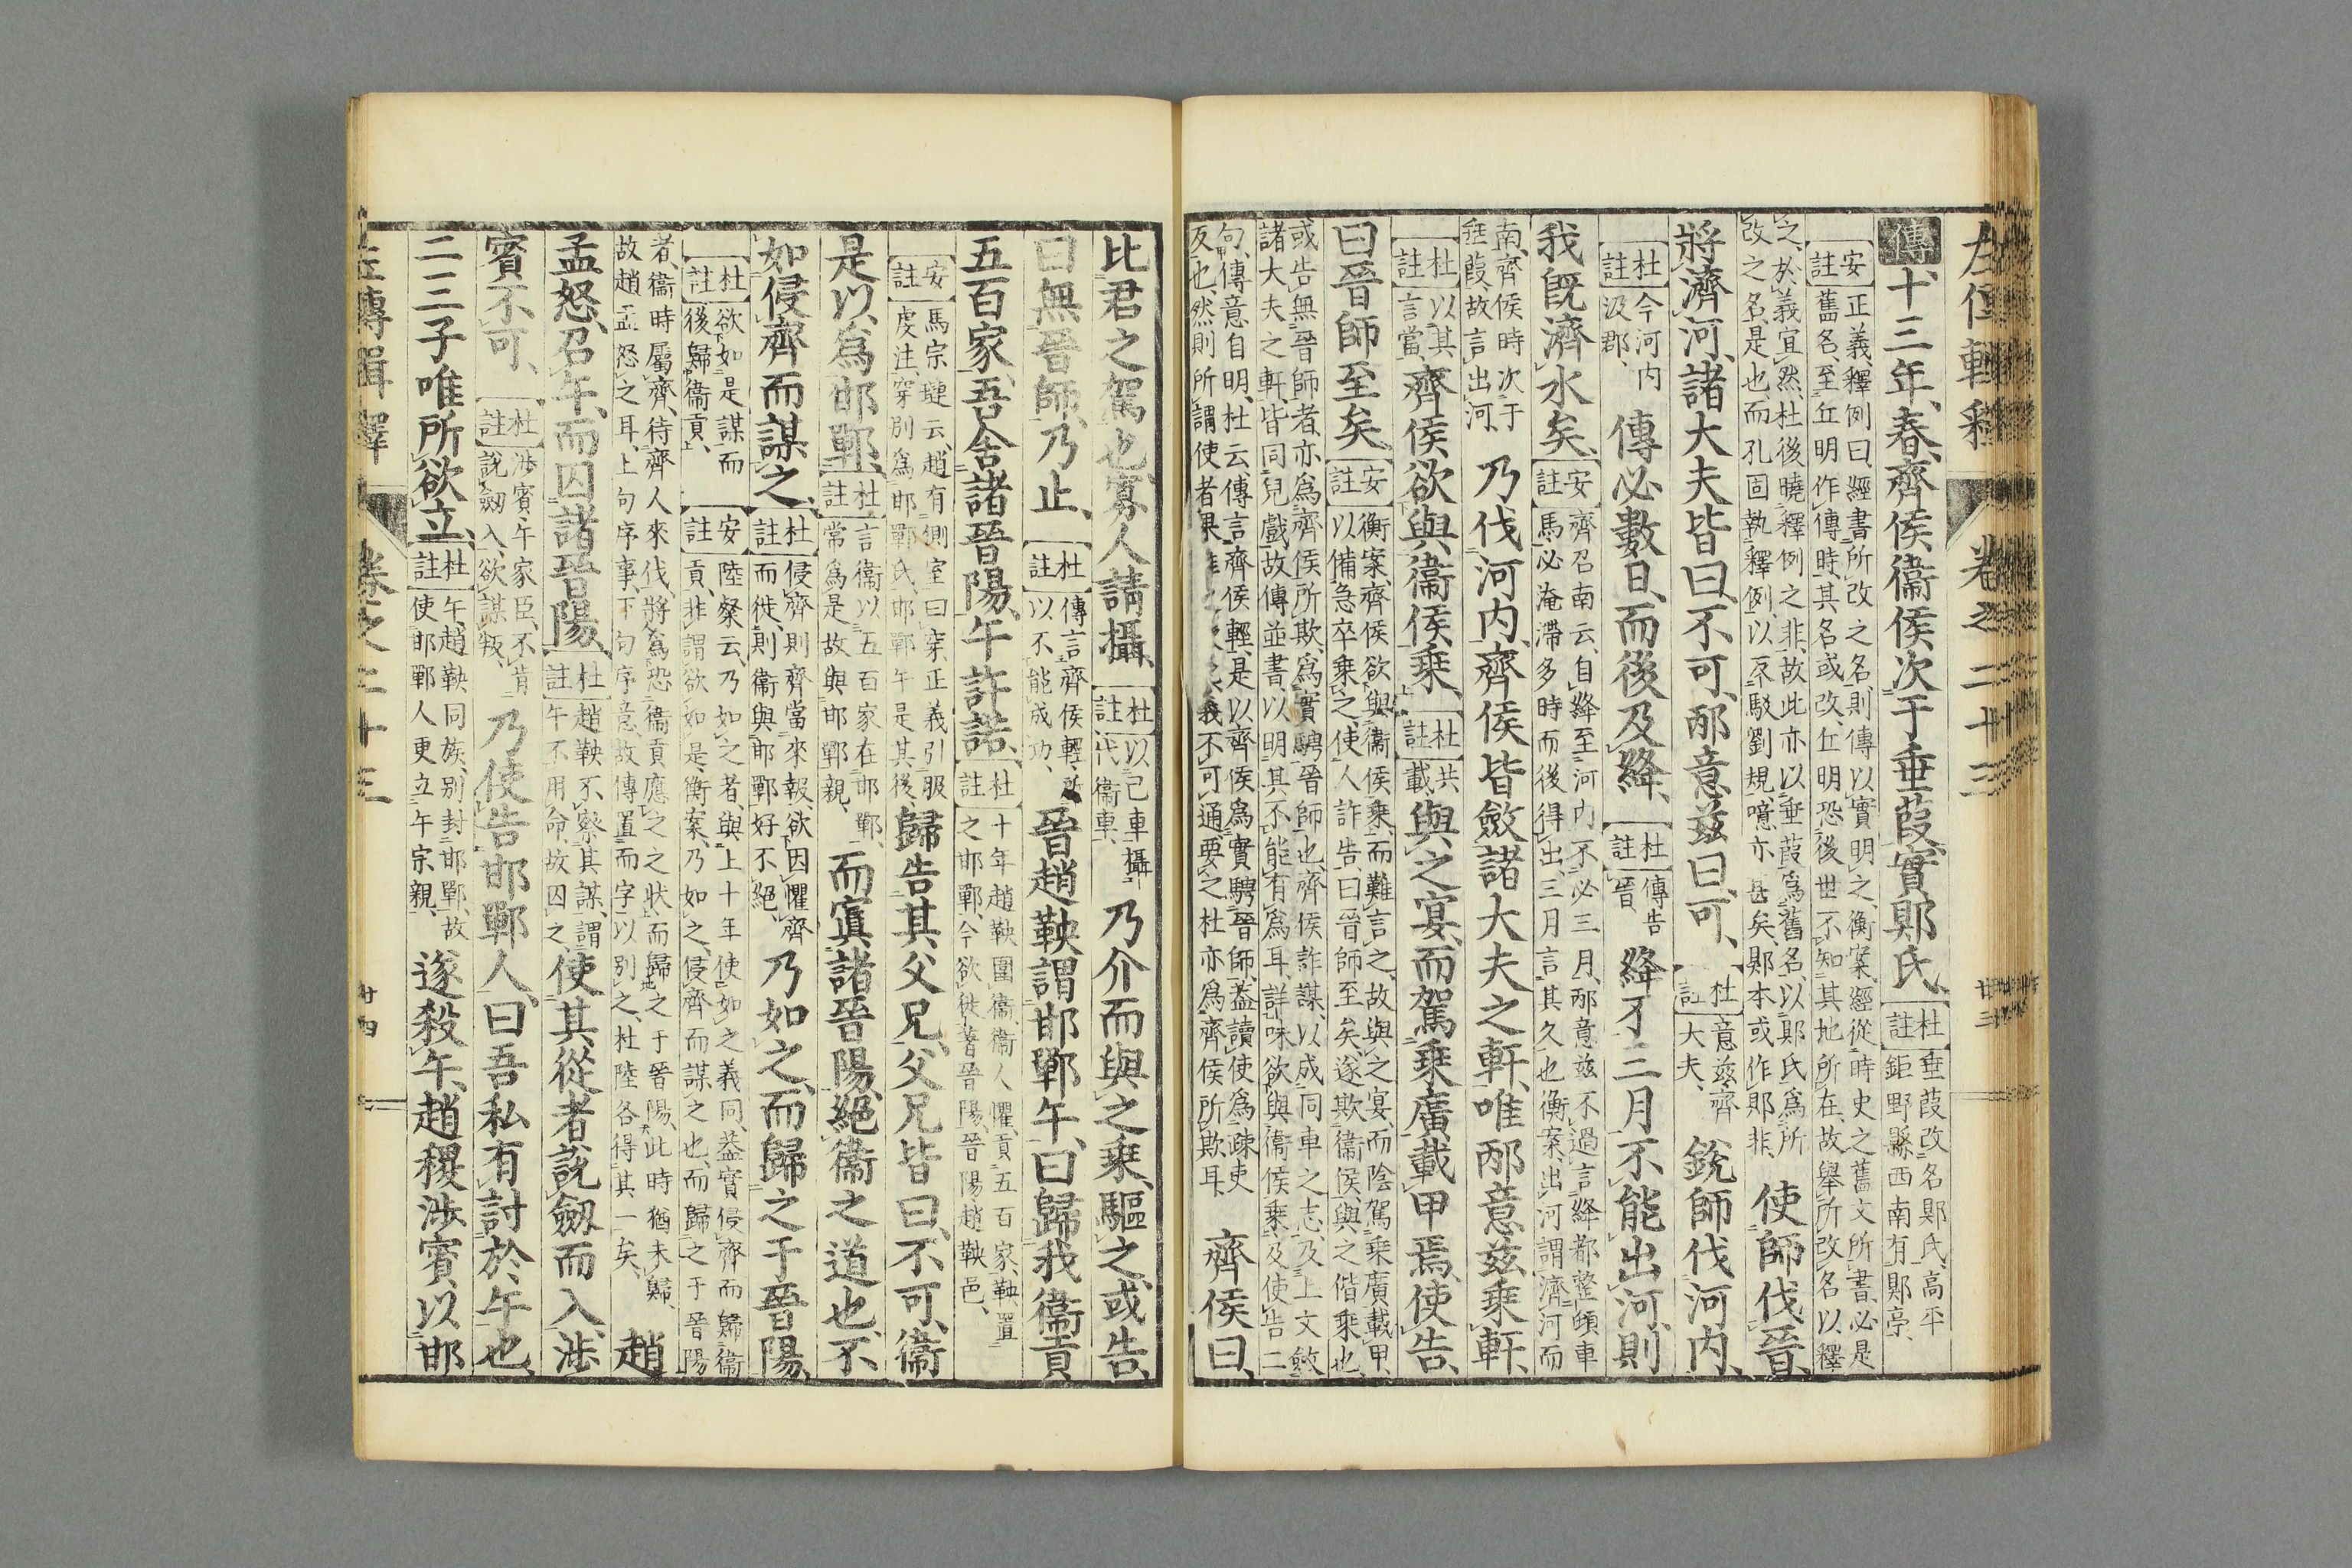 左傳輯釋 卷之二十三 廿三
傳十三年、春、齊侯衞侯次于垂葭、實郹氏、杜註垂葭改名郹氏、高平鉅野縣西南有郹亭、
安註正義、釋例曰、經書所改之名、則傳以實明之、衡案、經從時史之舊文所書、必是舊名、至丘明作傳時、其名或改、丘明恐後世不知其地所在、故舉所改名、以釋
之、於義宜然、杜後曉釋例之非、故此亦以垂葭爲舊名、以郹氏爲所改之名、是也、而孔固執釋例、以反駁劉規、噫亦甚矣、郹本或作郥非、使師伐晉、
將濟河、諸大夫皆曰、不可、邴意茲曰、可、杜註意茲、齊大夫、銳師伐河内、
杜註今河内汲郡、傳必數日、而後及絳、杜註傳告晉、絳不三月不能出河、則
我既濟水矣、安註齊召南云、自絳至河内不必三月、邴意茲不過言絳都整頓車馬必淹滯多時而後得出、三月言其久也、衡案、出河謂濟河而
南、齊侯時次于垂葭、故言出河、乃伐河内、齊侯皆斂諸大夫之軒、唯邴意茲乘軒、
杜註以其言當、齊侯欲與衞侯乘、杜註共載、與之宴、而駕乘廣、載甲焉、使告
曰晉師至矣、安註衡案、齊侯欲與衞侯乘、而難言之、故與之宴、而陰駕乘廣、載甲、以備急卒乘之、使人詐告曰晉師至矣、遂欺衞侯、與之偕乘也、
或告無晉師者、亦爲齊侯所欺、爲實騁晉師也、齊侯詐謀、以成同車之志、及上文斂諸大夫之軒、皆同兒戲、故傳並書、以明其不能有爲耳、詳味欲與衞侯乘、及使告二
句、傳意自明、杜云、傳言齊侯輕、是以齊侯爲實騁晉師、蓋讀使爲疎吏反也、然則所謂使者果義不可通、要之杜亦爲齊侯所欺耳、齊侯曰、
比君之駕也、寡人請攝、杜註以己車攝代衞車、乃介而與之乘、驅之、或告
曰無晉師、乃止、杜註傳言齊侯輕、所以不能成功、晉趙鞅謂邯鄲午、曰歸我衞貢
五百家、吾舍諸晉陽、午許諾、杜註十年趙鞅圍衞、衞人懼、貢五百家、鞅置之邯鄲、今欲徙著晉陽、晉陽趙鞅邑、
安註馬宗璉云、趙有側室曰穿、正義引服虔注、穿別爲邯鄲氏、邯鄲午是其後、歸告其父兄、父兄皆曰、不可、衞
是以爲邯鄲、杜註言衞以五百家在邯鄲、常爲是故與邯鄲親、而寘諸晉陽、絕衞之道也、不
如侵齊而謀之、杜註侵齊則齊當來報、欲因懼齊而徙、則衞與邯鄲好不絕、乃如之、而歸之于晉陽、
杜註欲如是謀而後歸衞貢、安註陸粲云、乃如之者、與上十年使如之義同、蓋實侵齊而歸衞貢、非謂欲如是、衡案、乃如之、侵齊而謀之也、而歸之于晉陽
者、衞時屬齊、待齊人來伐、將爲恐衞貢應之之狀、而歸之于晉陽、此時猶未歸、故趙孟怒之耳、上句序事、下句序意、故傳置而字以別之、杜陸各得其一矣、趙
孟怒、召午、而囚諸晉陽、杜註趙鞅不察其謀、謂午不用命、故囚之、使其從者說劔而入、涉
賓不可、杜註涉賓、午家臣、不肯說劔入、欲謀叛、乃使告邯鄲人、曰吾私有討於午也、
二三子唯所欲立、杜註午、趙鞅同族、別封邯鄲、故使邯鄲人更立午宗親、遂殺午、趙稷涉賓、以邯
左傳輯釋 卷之二十三 廿四